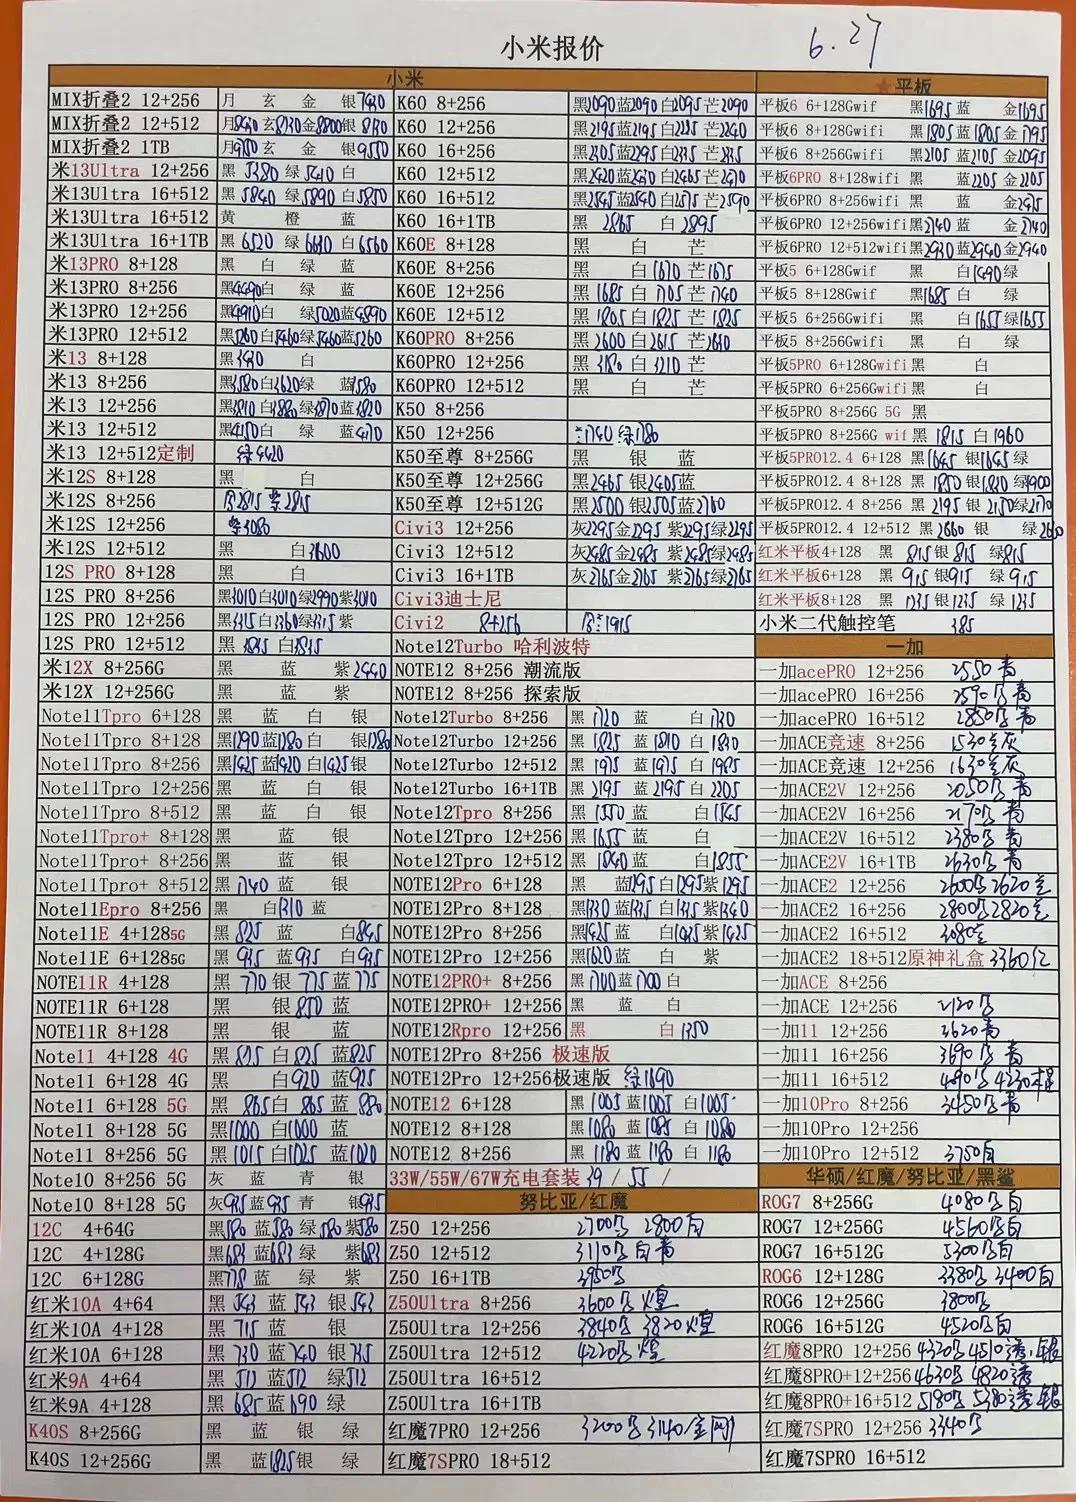 小米报价
6.27
小米
MIX折叠2 12+256 月 玄 金 银7430
MIX折叠2 12+512 月8430 玄8130 金8800 银8130
MIX折叠2 1TB 月9550 玄 金 银9550
米13Ultra 12+256 黑 5380 绿 5410 白
米13Ultra 16+512 黑 5840 绿 5890 白 5850
米13Ultra 16+512 黄 橙 蓝
米13Ultra 16+1TB 黑 6520 绿 6630 白6560
米13PRO 8+128 黑 白 绿 蓝
米13PRO 8+256 黑4490 白 绿 蓝
米13PRO 12+256 黑4910 白 绿5020 蓝4890
米13PRO 12+512 黑5260 白5460 绿5460 蓝5260
米13 8+128 黑3430 白
米13 8+256 黑3580 白3620 绿 蓝3580
米13 12+256 黑3810 白3880 绿3870 蓝3820
米13 12+512 黑4150 白 绿 蓝4170
米13 12+512定制 绿4420
米12S 8+128 黑 白
米12S 8+256 2815 紫2815
米12S 12+256 紫3080
米12S 12+512 黑 白3600
12S PRO 8+128 黑 白
12S PRO 8+256 黑3010 白3010 绿2990 紫3010
12S PRO 12+256 黑3315 白3360 绿3315 紫
12S PRO 12+512 黑 3835 白3835
米12X 8+256G 黑 蓝 紫2440
米12X 12+256G 黑 蓝 紫
Note11Tpro 6+128 黑 蓝 白 银
Note11Tpro 8+128 黑1290 蓝1280 白 银1280
Note11Tpro 8+256 黑1425 蓝1420 白1425 银
Note11Tpro 12+256 黑 蓝 白 银
Note11Tpro 8+512 黑 蓝 白 银
Note11Tpro+ 8+128 黑 蓝 银
Note11Tpro+ 8+256 黑 蓝 银
Note11Tpro+ 8+512 黑 1740 蓝 银
Note11Epro 8+256 黑 白1310 蓝
Note11E 4+128 5G 黑 825 蓝 白845
Note11E 6+128 5G 黑 935 蓝 935 白935
NOTE11R 4+128 黑 770 银 775 蓝 775
NOTE11R 6+128 黑 银850 蓝
NOTE11R 8+128 黑 银 蓝
Note11 4+128 4G 黑 825 白825 蓝825
Note11 6+128 4G 黑 白920 蓝925
Note11 6+128 5G 黑 865 白 865 蓝 880
Note11 8+128 5G 黑1000 白1000 蓝
Note11 8+256 5G 黑 1015 白1025 蓝1020
Note10 8+256 5G 灰 蓝 青 银
Note10 8+128 5G 灰935 蓝935 青 银935
12C 4+64G 黑580 蓝580 绿580 紫580
12C 4+128G 黑683 蓝683 绿 紫683
12C 6+128G 黑778 蓝 绿 紫
红米10A 4+64 黑 543 蓝 543 银543
红米10A 4+128 黑 715 蓝 银
红米10A 6+128 黑 730 蓝 740 银735
红米9A 4+64 黑 511 蓝512 绿512
红米9A 4+128 黑 685 蓝690 绿
K40S 8+256G 黑 蓝 银 绿
K40S 12+256G 黑 蓝1825 银 绿
K60 8+256 黑2090 蓝2090 白2095 芒2090
K60 12+256 黑2195 蓝2195 白2235 芒2240
K60 16+256 黑2305 蓝2295 白2335 芒2335
K60 12+512 黑2420 蓝2430 白2465 芒2470
K60 16+512 黑2545 蓝2540 白2575 芒2590
K60 16+1TB 黑 2865 白 2895
K60E 8+128 黑 白 芒
K60E 8+256 黑 白1670 芒1675
K60E 12+256 黑 1685 白 1705 芒1740
K60E 12+512 黑 1805 白1825 芒 1825
K60PRO 8+256 黑2600 白 2615 芒2630
K60PRO 12+256 黑 3180 白 3210 芒
K60PRO 12+512 黑 白 芒
K50 8+256
K50 12+256 1740 绿1780
K50至尊 8+256G 黑 银 蓝
K50至尊 12+256G 黑2465 银2405 蓝
K50至尊 12+512G 黑2500 银2505 蓝2760
Civi3 12+256 灰2295 金2295 紫2295 绿2295
Civi3 12+512 灰2485 金2485 紫2485 绿2485
Civi3 16+1TB 灰2765 金2765 紫2765 绿2765
Civi3迪士尼
Civi2 8+256 1915
Note12Turbo 哈利波特
NOTE12 8+256 潮流版
NOTE12 8+256 探索版
Note12Turbo 8+256 黑 1720 蓝 白 1730
Note12Turbo 12+256 黑 1825 蓝 1810 白 1830
Note12Turbo 12+512 黑 1975 蓝1975 白 1985
Note12Turbo 16+1TB 黑 2195 蓝 2195 白 2205
Note12Tpro 8+256 黑 1550 蓝 白 1545
Note12Tpro 12+256 黑1655 蓝 白
Note12Tpro 12+512 黑 1840 蓝 白1855
NOTE12Pro 6+128 黑 蓝1295 白1295 紫1295
NOTE12Pro 8+128 黑1330 蓝1335 白1335 紫1340
NOTE12Pro 8+256 黑1425 蓝 白1425 紫1425
NOTE12Pro 12+256 黑1620 蓝 白 紫
NOTE12PRO+ 8+256 黑1700 蓝1700 白
NOTE12PRO+ 12+256 黑 蓝 白
NOTE12Rpro 12+256 黑 白1350
NOTE12Pro 8+256 极速版
NOTE12Pro 12+256极速版 绿1690
NOTE12 6+128 黑 1005 蓝1005 白1005
NOTE12 8+128 黑 1080 蓝 1085 白 1080
NOTE12 8+256 黑 1180 蓝 1180 白 1180
33W/55W/67W充电套装 39 / 55 /
努比亚/红魔
Z50 12+256 2700 2800白
Z50 12+512 3110 白 青
Z50 16+1TB 3950
Z50Ultra 8+256 3600 煌
Z50Ultra 12+256 3840 3820煌
Z50Ultra 12+512 4220 煌
Z50Ultra 16+512
Z50Ultra 16+1TB
红魔7PRO 12+256 3200 3140
红魔7SPRO 18+512
★平板
平板6 6+128Gwif 黑1695 蓝 金1695
平板6 8+128Gwifi 黑1805 蓝1805 金1795
平板6 8+256Gwifi 黑2105 蓝2105 金2095
平板6PRO 8+128wifi 黑 蓝2205 金2205
平板6PRO 8+256wifi 黑 蓝 金2475
平板6PRO 12+256wifi 黑2740 蓝 金2740
平板6PRO 12+512wifi 黑2930 蓝2940 金2940
平板5 6+128Gwif 黑 白1490 绿
平板5 8+128Gwif 黑1685 白 绿
平板5 6+256Gwifi 黑 白1655 绿1655
平板5 8+256Gwifi 黑 白 绿
平板5PRO 6+128Gwifi 黑 白
平板5PRO 6+256Gwifi 黑 白
平板5PRO 8+256G 5G 黑
平板5PRO 8+256G wif 黑 1815 白1960
平板5PRO12.4 6+128 黑1645 银1645 绿
平板5PRO12.4 8+128 黑 1850 银1830 绿1900
平板5PRO12.4 8+256 黑 2195 银2150 绿2170
平板5PRO12.4 12+512 黑2660 银 绿2660
红米平板4+128 黑 815 银 815 绿815
红米平板6+128 黑 915 银915 绿 915
红米平板8+128 黑 1235 银1235 绿 1235
小米二代触控笔 385
一加
一加acePRO 12+256 2550 青
一加acePRO 16+256 2590 青
一加acePRO 16+512 2850 青
一加ACE竞速 8+256 1530 灰
一加ACE竞速 12+256 1630 灰
一加ACE2V 12+256 2050 青
一加ACE2V 16+256 2170 青
一加ACE2V 16+512 2380 青
一加ACE2V 16+1TB 2630 青
一加ACE2 12+256 2600 2620
一加ACE2 16+256 2800 2820
一加ACE2 16+512 3080
一加ACE2 18+512原神礼盒 3360红
一加ACE 8+256
一加ACE 12+256 2120
一加11 12+256 3620青
一加11 16+256 3690 青
一加11 16+512 4090 4230
一加10Pro 8+256 3450 青
一加10Pro 12+256
一加10Pro 12+512 3750白
华硕/红魔/努比亚/黑鲨
ROG7 8+256G 4080 白
ROG7 12+256G 4560 白
ROG7 16+512G 5300 白
ROG6 12+128G 3380 3400白
ROG6 12+256G 3800
ROG6 16+512G 4520 白
红魔8PRO 12+256 4320 4510透 银
红魔8PRO+12+256 4630 4820透
红魔8PRO+16+512 5180 5380透 银
红魔7SPRO 12+256 3340
红魔7SPRO 16+512